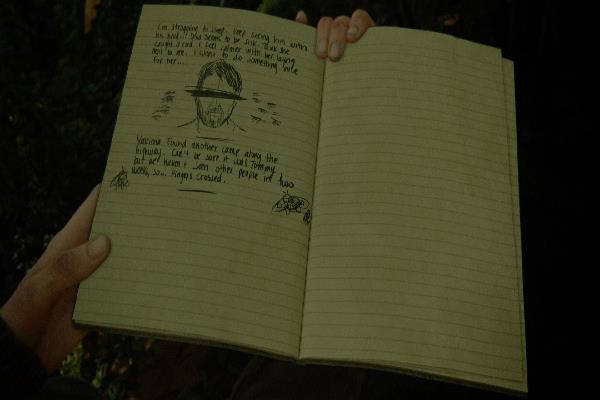 I'm struggling to sleep. Keep seeing him with
his bird... Dina seems to be sick. Think she
caught a cold. I feel calmer with her laying
next to me. I want to do something nice
for her...
Yakima. Found another camp along the
highway. Can't be sure it was Tommy
but we haven't seen other people in two
weeks, so... Fingers crossed.